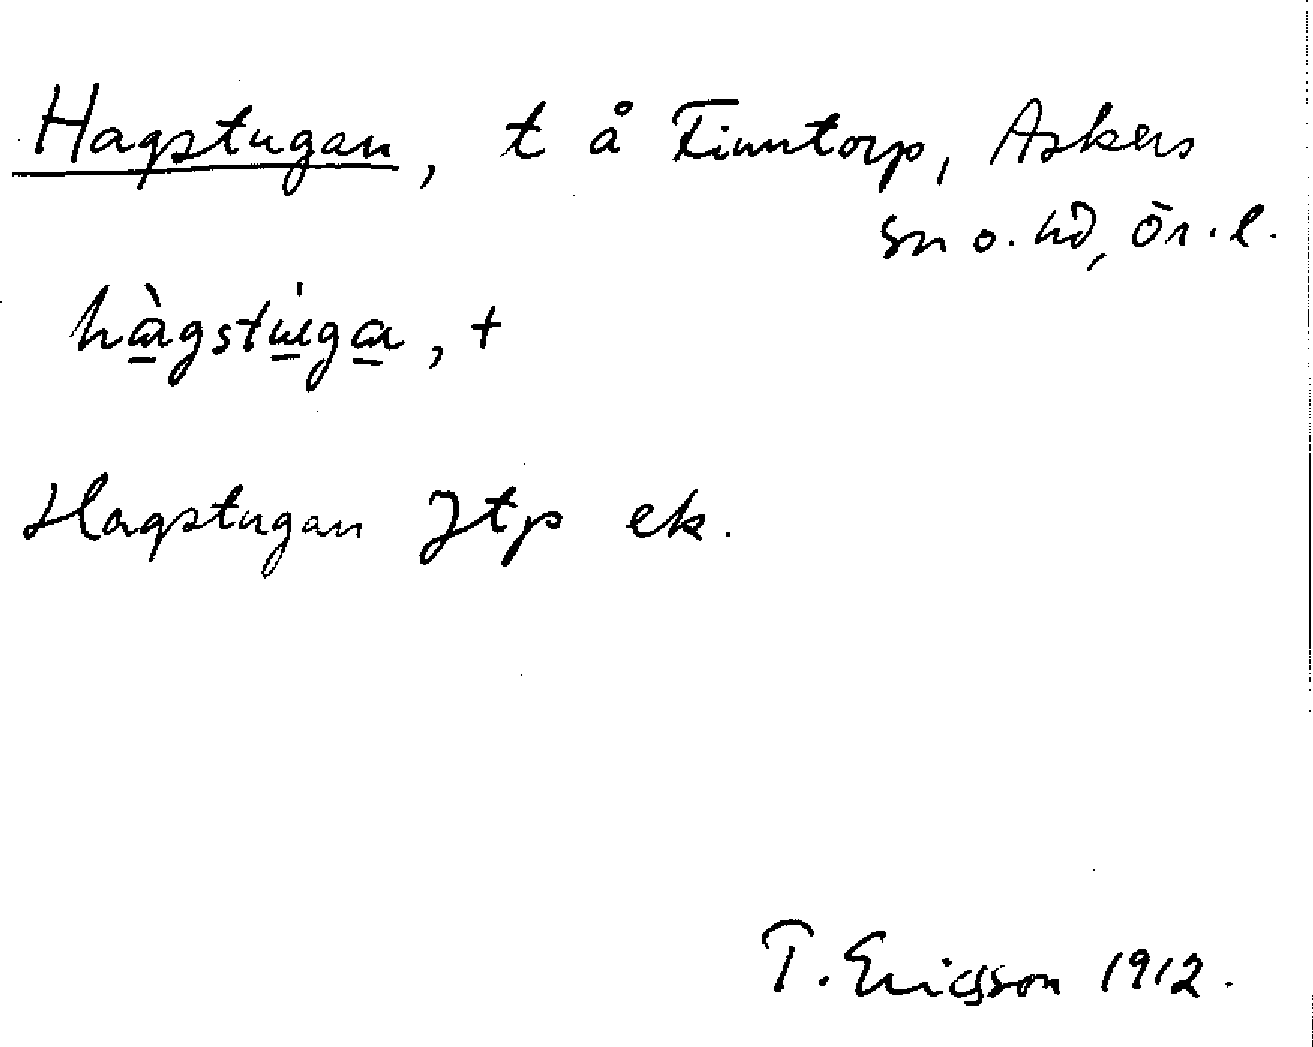 Hagstugan, t å Finntorp, Askers
sn o. hd, Ör. l.
hàgstúga, +
Hagstugan Jtp ek.
T. Ericsson 1912.